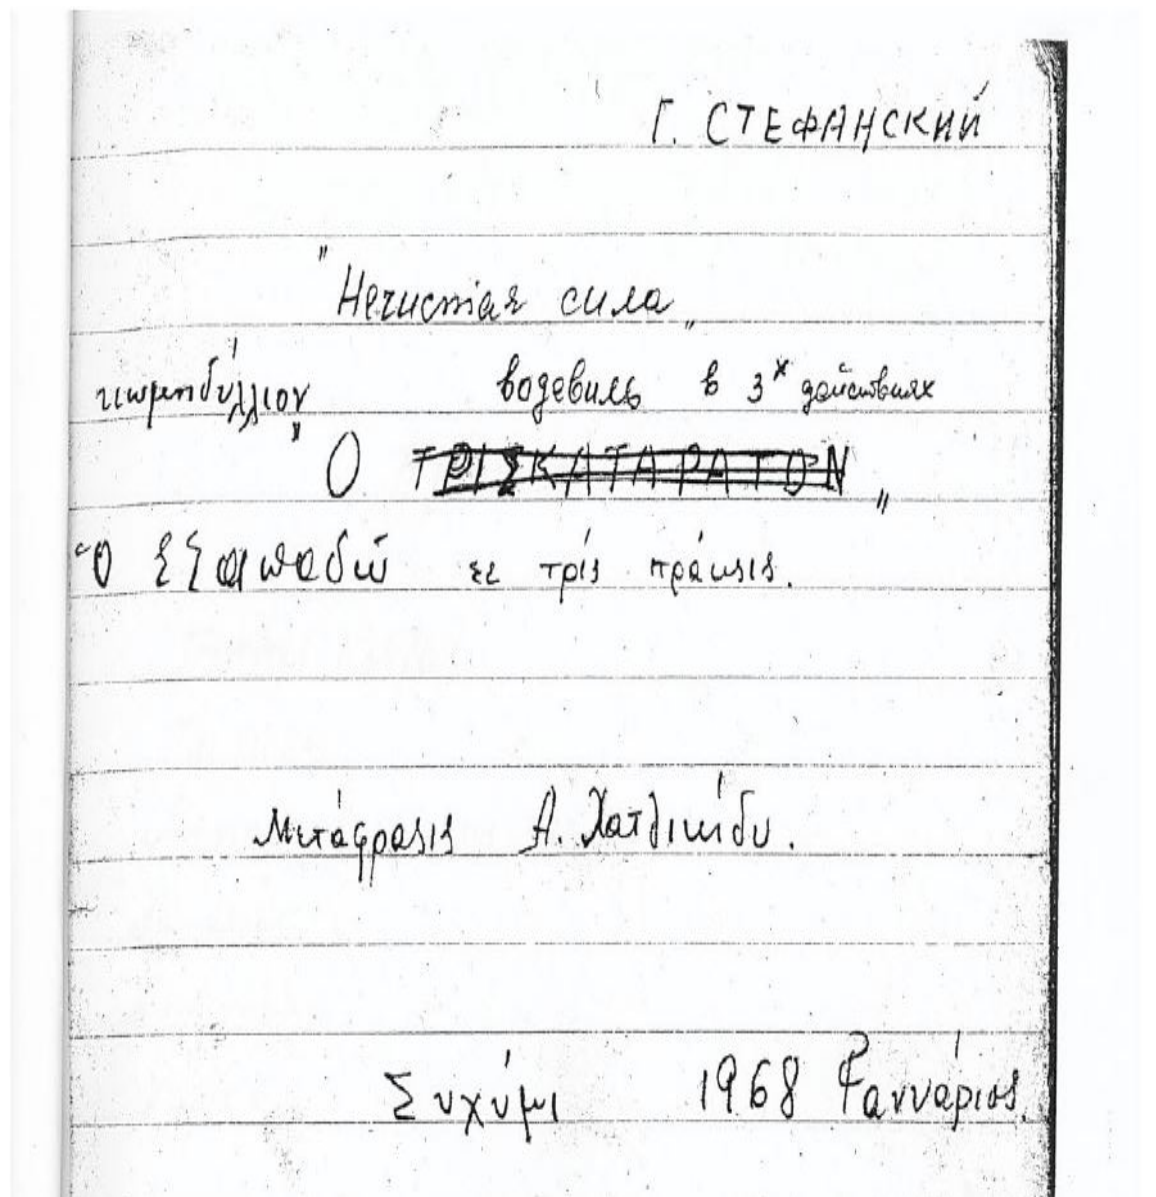 Г. СТЕФАНСКИЙ
"Нечистая сила"
κωμηδύλλιον водевиль в 3х действиях
"Ο ΤΡΙΣΚΑΤΑΡΑΤΟΝ"
Ὁ ἐξαποδῶ σε τρίς πράκσις.
Μετάφρασις Α. Χατζικίδυ.
Συχύμι 1968 Γαννάριος.